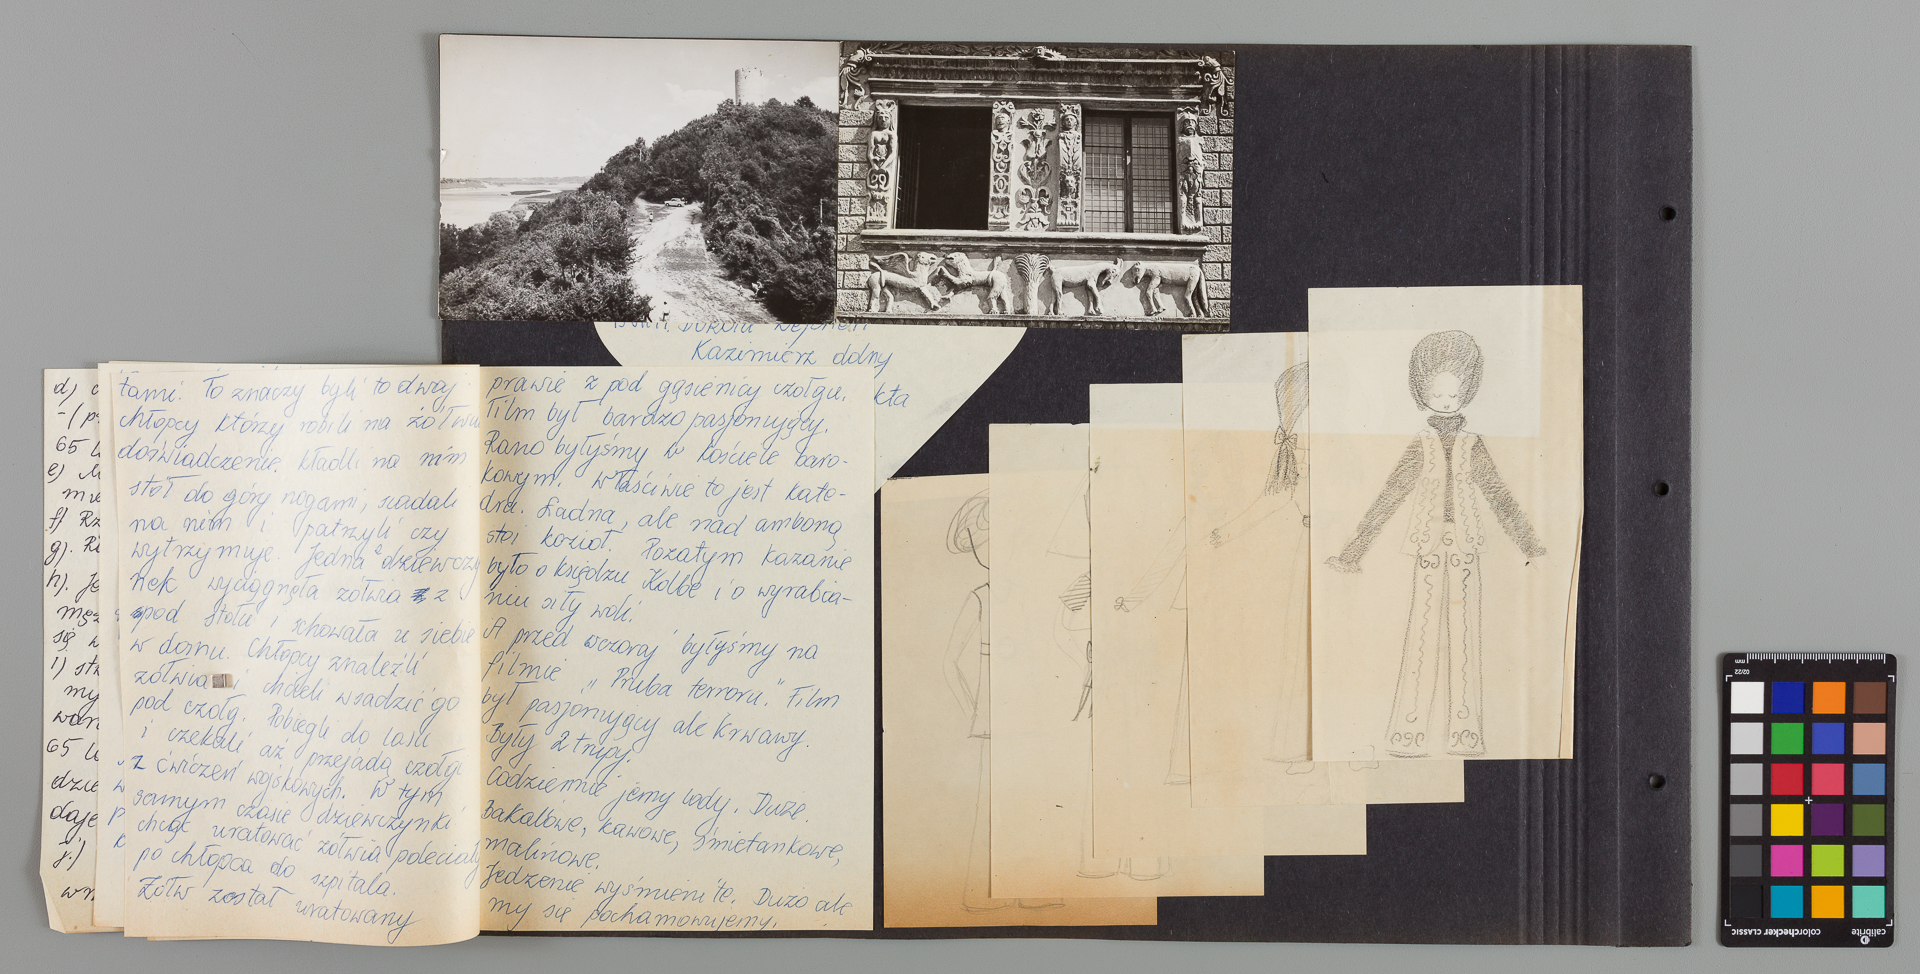 Kazimierz dolny
kta
d)
-(p
65 l
e)
mie
f) Rz
g).
h). Je
męz
się w
i) st
my
wan
65 le
dzie
daje
j.)
wn
łami. To znaczy byli to dwaj
chłopcy którzy robili na żółwiu
doświadczenie. Kładli na nim
stół do góry nogami, siadali
na nim i patrzyli czy
wytrzymuje. Jedna z dziewczy
nek wyciągnęła żółwia z
spod stołu i schowała u siebie
w domu. Chłopcy znaleźli
żółwia i chcieli wsadzić go
pod czołg. Pobiegli do lasu
i czekali aż przejadą czołgi
z ćwiczeń wojskowych. W tym
samym czasie dziewczynki
chcąc uratować żółwia poleciały
po chłopca do szpitala.
Żółw został uratowany
prawie z pod gąsienicy czołgu.
Film był bardzo pasjonujący.
Rano byłyśmy w kościele baro-
kowym. Właściwie to jest kate-
dra. Ładna, ale nad amboną
stoi kozioł. Pozatym kazanie
było o księdzu Kolbe i o wyrabia-
niu siły woli.
A przed wczoraj byłyśmy na
filmie "Pruba terroru." Film
był pasjonujący ale krwawy.
Były 2 trupy.
Codziennie jemy lody. Duże.
Bakalowe, kawowe, śmietankowe,
malinowe.
Jedzenie wyśmienite. Dużo ale
my się pochamowujemy.
calibrite
colorchecker CLASSIC
mm